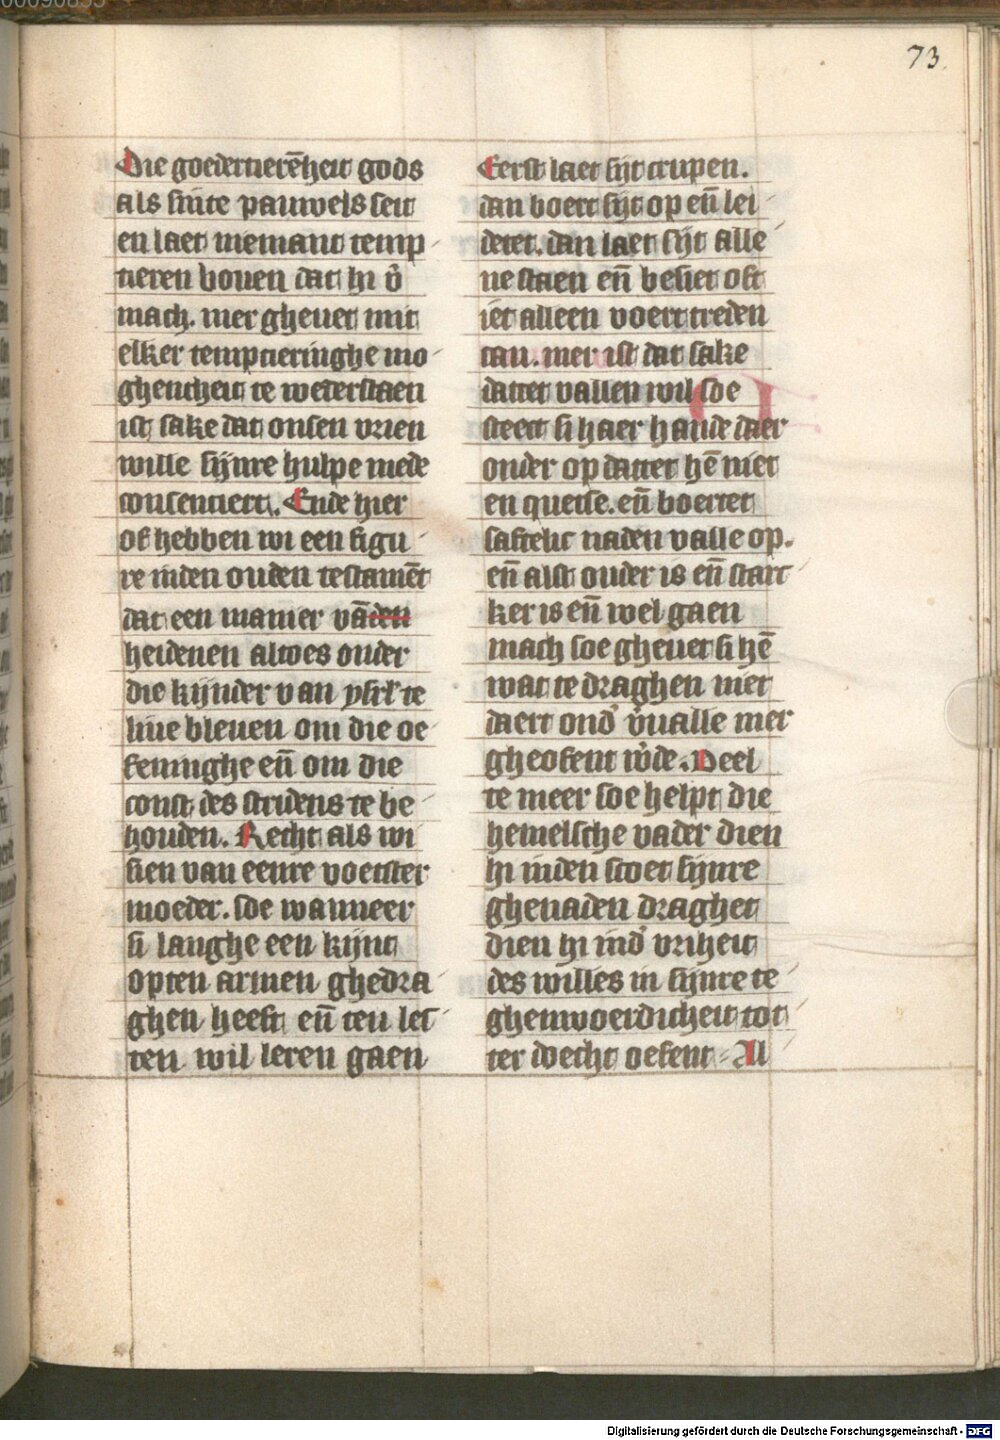 73.
Die goedertierēheit gods
als sinte pauwels seit
en laet niemant temp
tieren bouen dat hi v̄
mach. mer gheuet mit
elker temptieringhe mo
ghentheit te wederstaen
ist sake dat onsen vrien
wille sijnre hulpe mede
consentiert. Ende hier
of hebben wi een figu
re inden ouden testamēt
dat een manier vā den
heidenen altoes onder
die kijnder van ysrl' te
liue bleuen om die oe
feninghe en̄ om die
const des stridens te be
houden. Recht als wi
sien van eenre voetster
moeder. soe wanneer
si langhe een kijnt
opten armen ghedra
ghen heeft en̄ ten les
ten wil leren gaen
Eerst laet sijt crupen.
dan boert sijt op en̄ lei
detet. dan laet sijt alle
ne staen en̄ besiet oft
iet alleen voert treden
can. mer ist dat sake
dattet vallen wil soe
steect si haer hande daer
onder op dattet hē niet
en quetse. en̄ boertet
saftelic naden valle op.
en̄ alst ouder is en̄ starc
ker is en̄ wel gaen
mach soe gheuet si hē
wat te draghen niet
daert ond' v'ualle mer
gheofent w'de. Veel
te meer soe helpt die
hemelsche vader dien
hi inden scoet sijnre
ghenaden draghet
dien hi ind' vriheit
des willes in sijnre te
ghenwoerdicheit tot
ter doecht oefent. Al
Digitalisierung gefördert durch die Deutsche Forschungsgemeinschaft - DFG